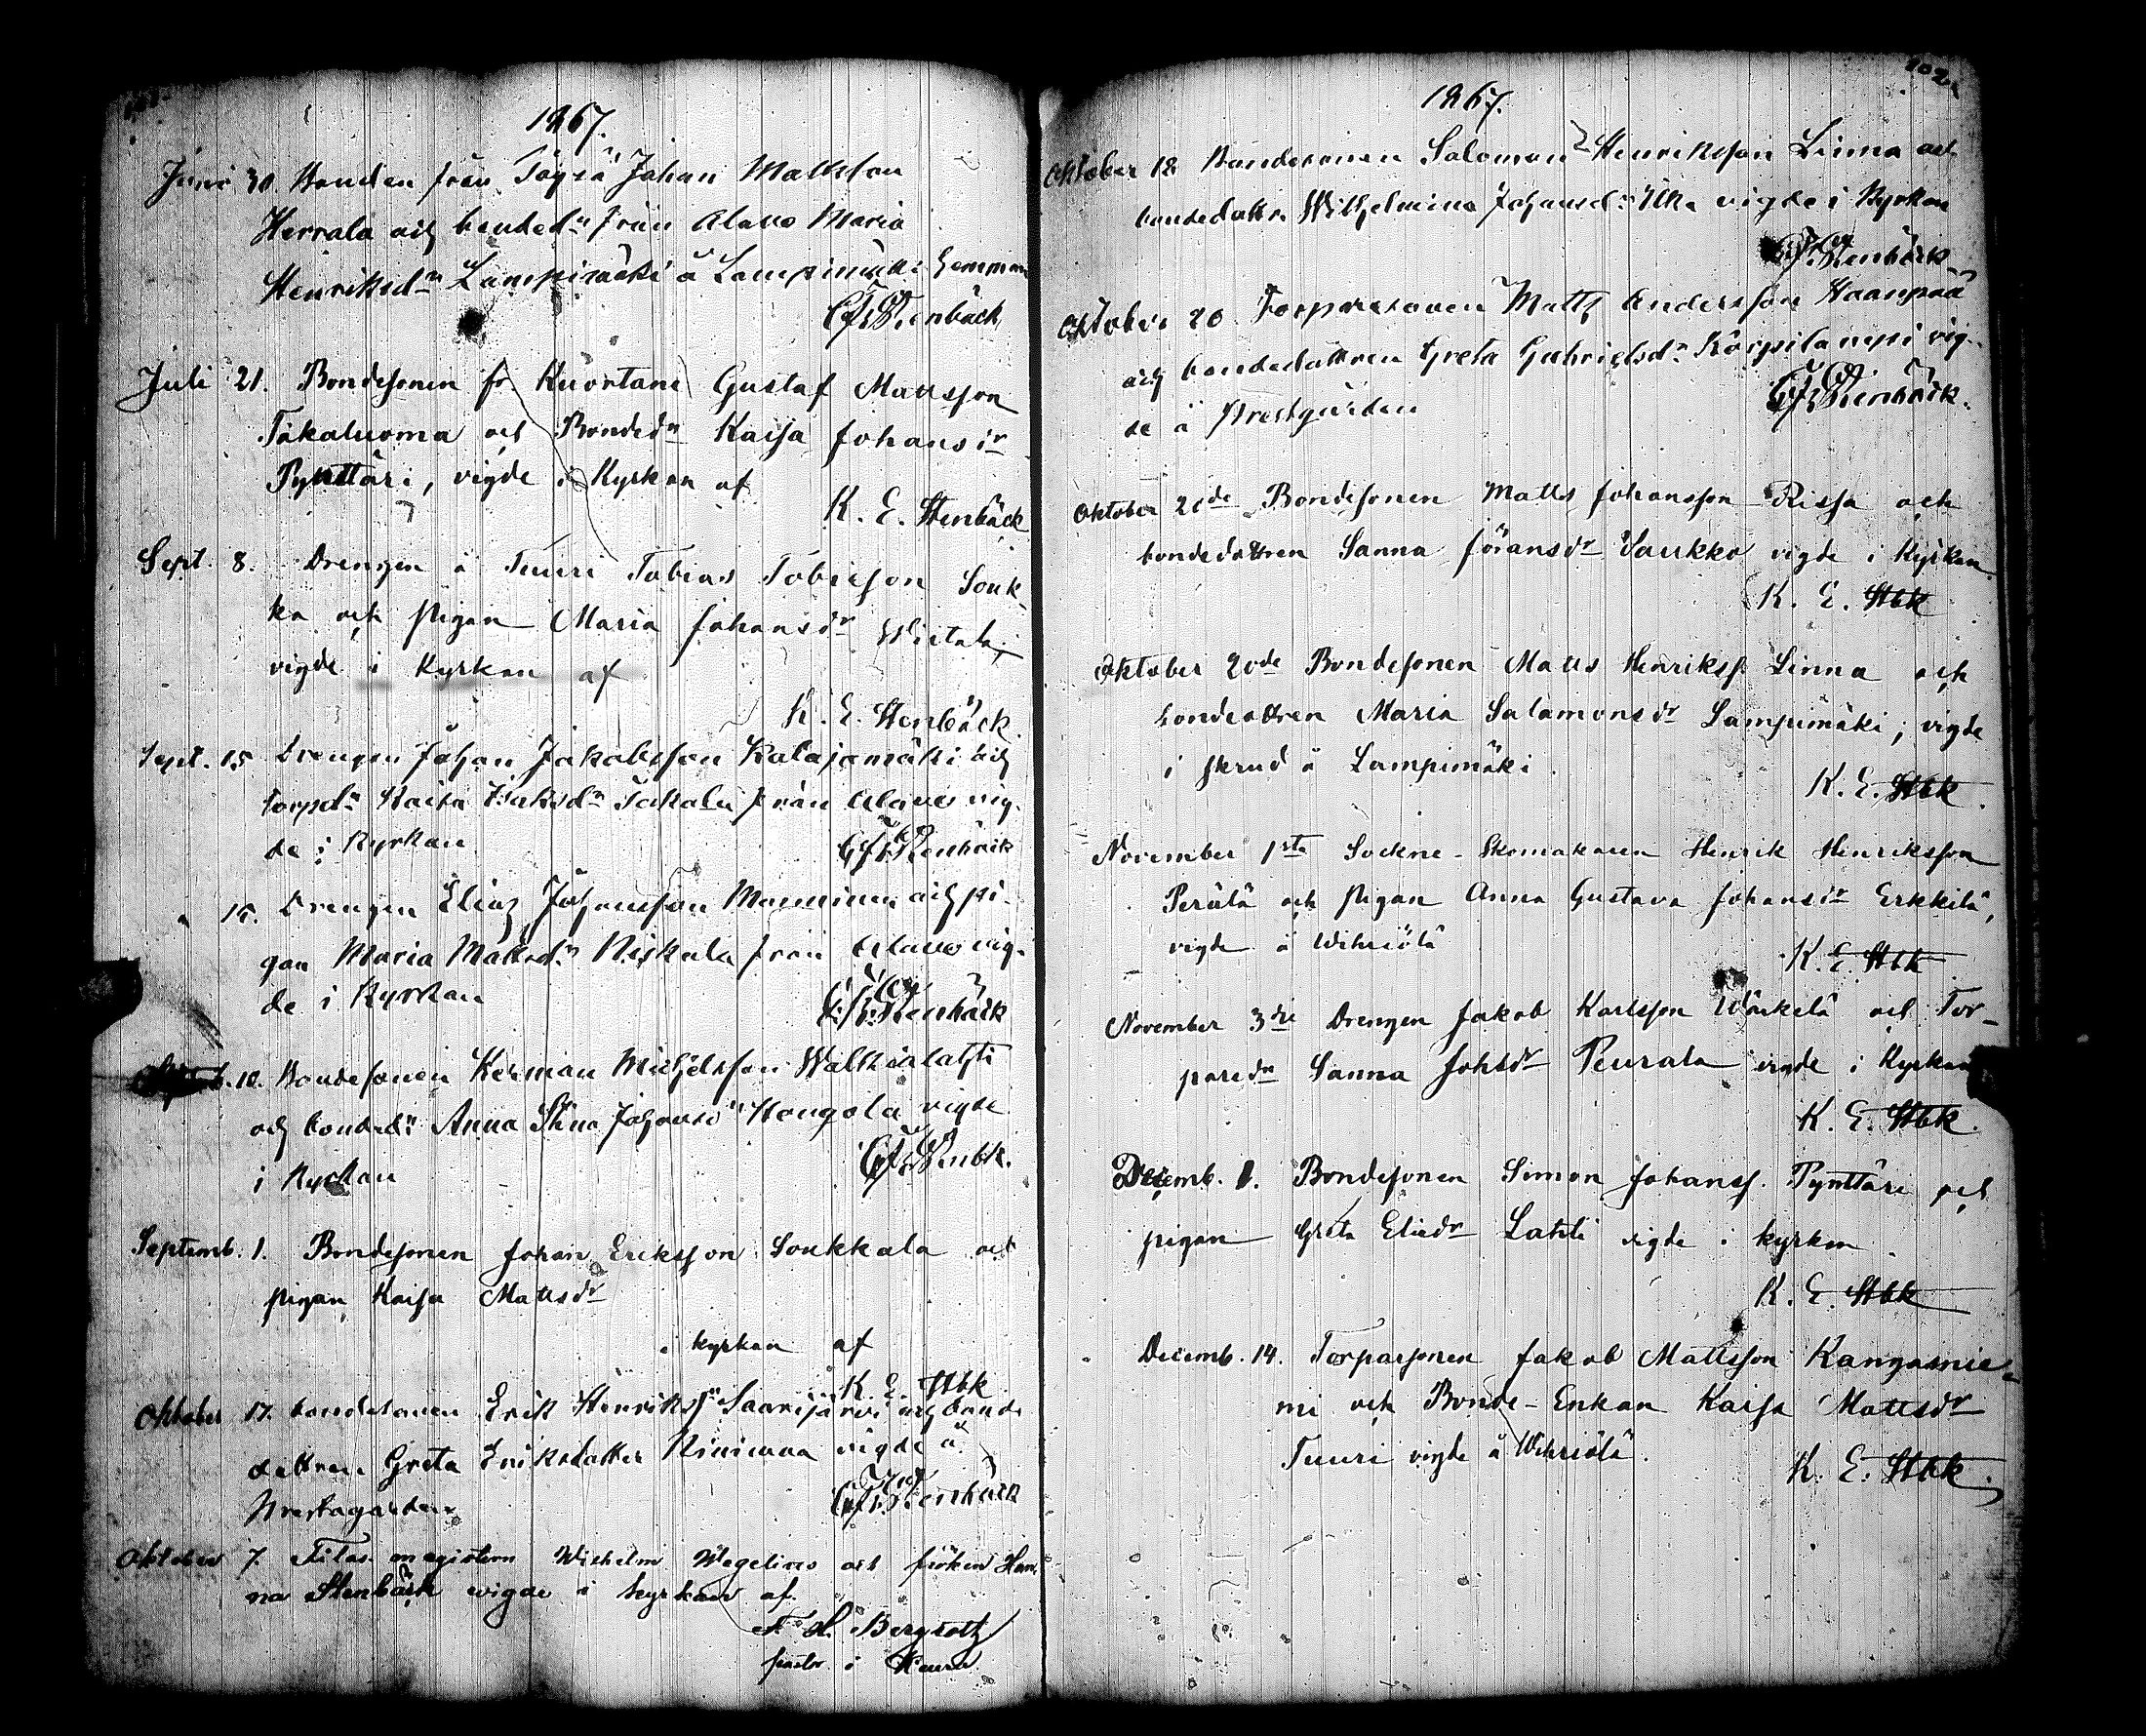 1867.
Juni 30. Bonden från Töysä Johan Mattsson
Herrala och bonded:r från Alavo Maria
Henriksd:r Lampimäki å Lampimäki hemman
Stenbäck
Juli 21. Bondesonen fr. Kuortane Gustaf Mattsson
Takaluoma och Bonded:r Kaisa Johansd:r
Pynttäri, vigde i Kyrkan af
K. E. Stenbäck
Sept. 8. Drengen å Tuuri Tobias Tobiesson Souk-
ka och pigan Maria Johansd:r
vigde i Kyrkan af
K. E. Stenbäck.
Sept. 15 Drengen Johan Jakobsson Kalajamäki och
torpd:r Kaisa från Alavo vig-
de i Kyrkan
Stenbäck
15. Drengen Elias Johansson Manninen och pi-
gan Maria Mattsd:r Niskala från Alavo vig-
de i Kyrkan
Stenbäck
10. Bondesonen Herman Michelsson
och bonded:r Anna Stina Johansd:r Hongola vigde
i Kyrkan
Stenbk.
Septemb. 1. Bondesonen Johan Eriksson Soukkala och
pigan Kaisa Mattsd:r
i kyrkan af
K. E. Stbk
Oktober 17. bondesonen Erik Henrikss:n Saarijärvi och bonde
dottren Greta Eriksdotter vigde å
Prestagården
Stenbäck
Oktober 7. Filos. magistern Wilhelm Wegelius och fröken Han-
na Stenbäck vigde i kyrkan af
Bergroth
pastor i
102.
1867.
Oktober 18 Bondesonen Salomon Henriksson Linna och
bondedottr. Wilhelmina Johansd:r vigde i Kyrkan
Stenbäck
Oktober 20 Torparesonen Matts Andersson Haanpää
och bondedottren Greta Gabrielsd:r Körpilampi vig-
de å Prestgården
Stenbäck.
Oktober 20de Bondesonen Matts Johansson Rissa och
bondedottren Sanna Jöransdr Vaukko vigde i Kyrkan.
K. E. Stbk
Oktober 20de Bondesonen Matts Henrikss. Linna och
bondedttren Maria Salamonsdr Lampimäki; vigde
i skrud å Lampimäki.
K. E. Stbk.
November 1sta Sockne-Skomakaren Henrik Henriksson
Perälä och pigan Anna Gustava Johansdr Erkkilä,
vigde å Wihriölä
K. E. Stbk
November 3dje Drengen Jakob Karlsson och Tor-
paredr Sanna Johsdr Peurala vigde i Kyrkan
K. E. Stbk.
Decemb. 1. Bondesonen Simon Johanss. Pynttäri och
pigan Greta Eliedr Lahti vigde i kyrkan.
K. E. Stbk
Decemb. 14. Torparsonen Jakob Mattsson Kangasnie-
mi och Bonde-Enkan Kaisa Mattsdr
Tuuri vigde å Wihriölä.
K. E. Stbk.